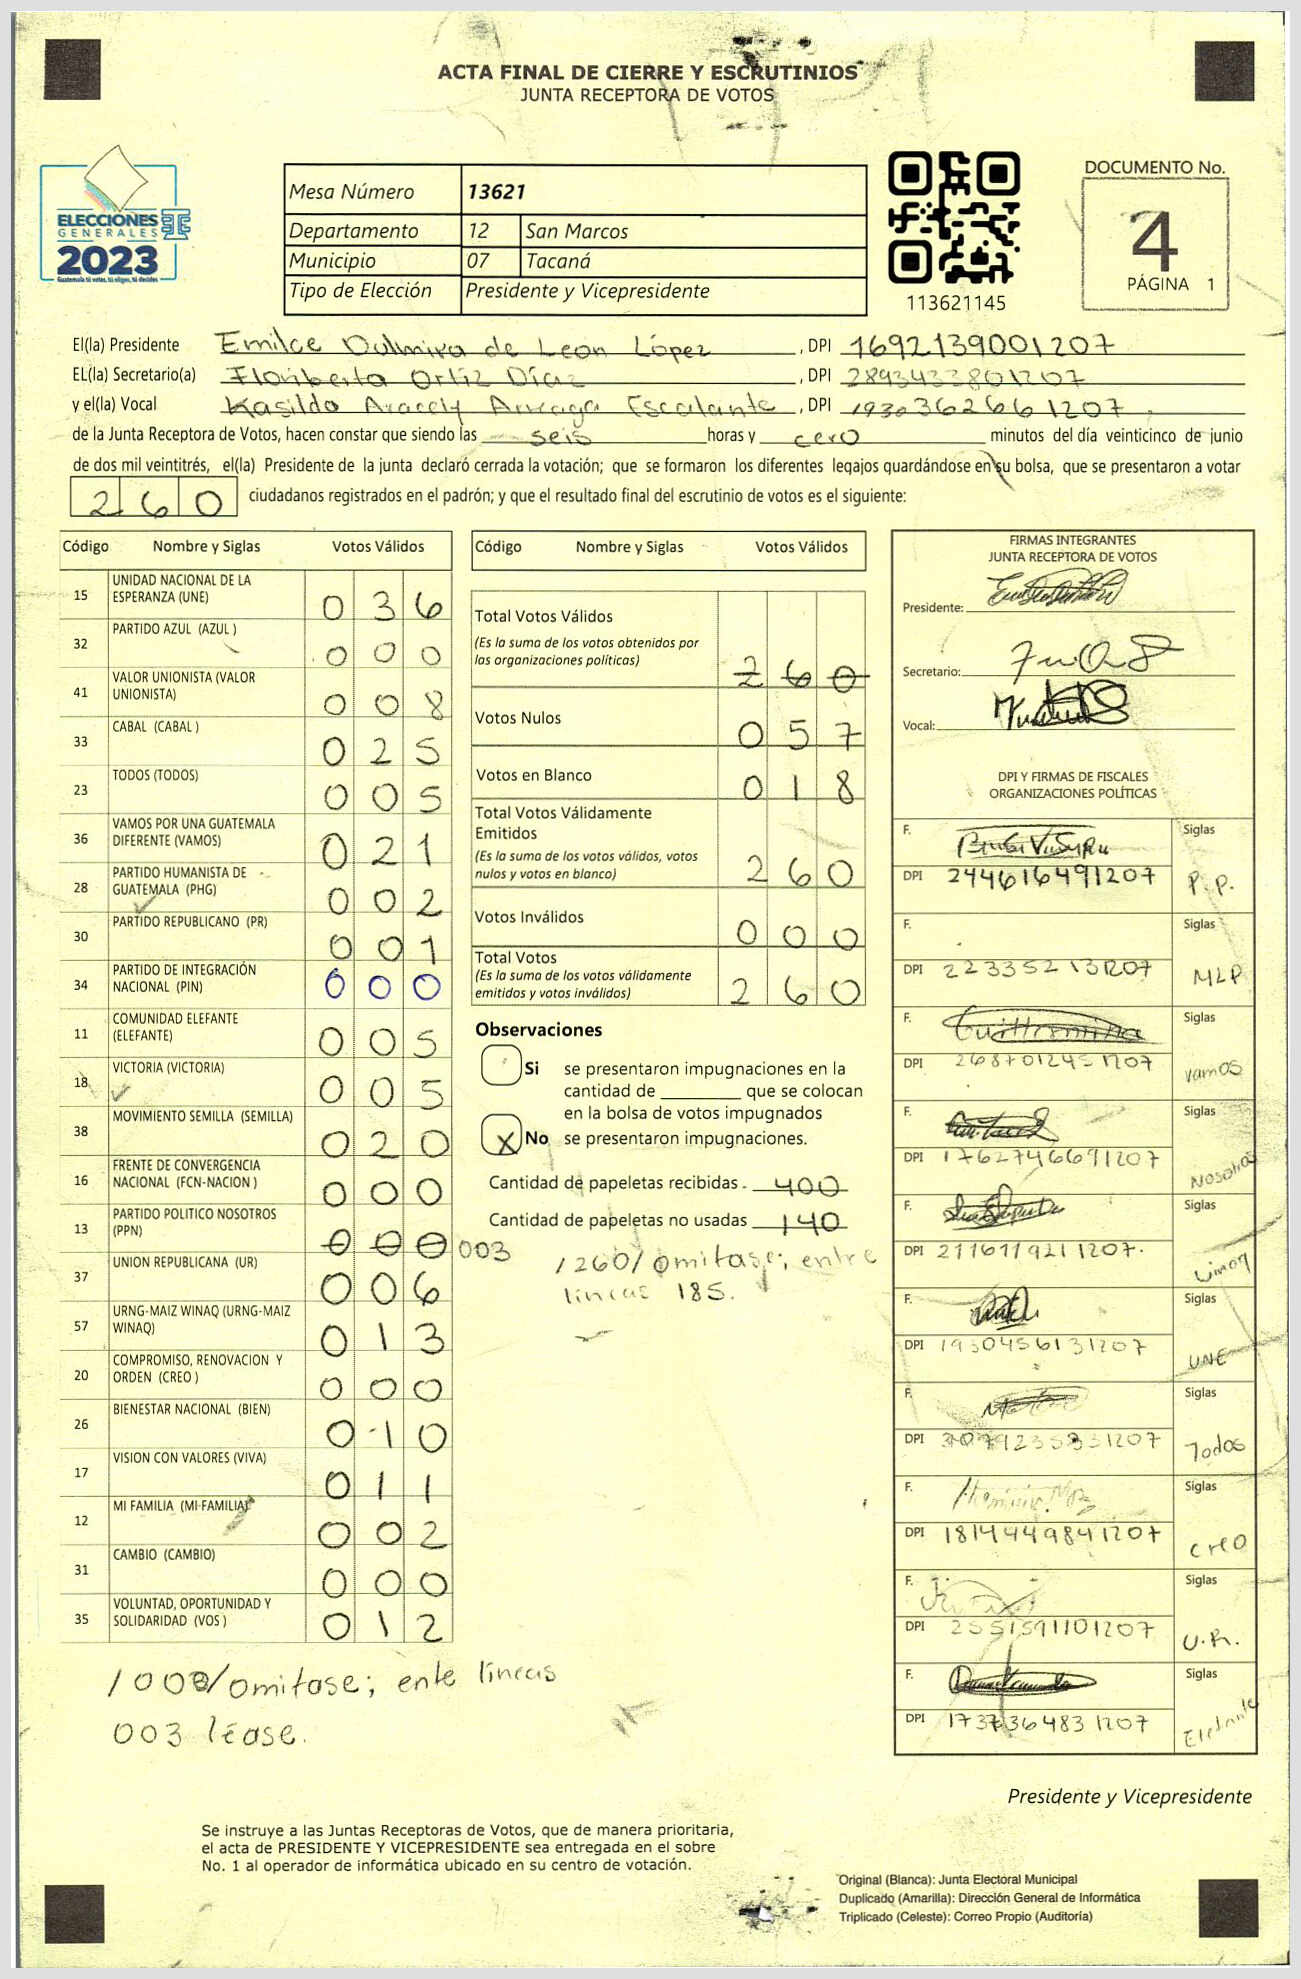 ACTA FINAL DE CIERRE Y ESCRUTINIOS
JUNTA RECEPTORA DE VOTOS
ELECCIONES
GENERALES
2023
Mesa Número 13621
Departamento 12 San Marcos
Municipio 07 Tacaná
Tipo de Elección Presidente y Vicepresidente
113621145
DOCUMENTO No.
4
PÁGINA 1
El(la) Presidente Emilce Dulmira de Leon López, DPI 1692139001207
EL(la) Secretario(a) Floriberto Ortiz Díaz, DPI 2893433801207
y el(la) Vocal Kasilda Aracely Arreaga Escalante, DPI 1930362661207
de la Junta Receptora de Votos, hacen constar que siendo las seis horas y cero minutos del día veinticinco de junio
de dos mil veintitrés, el(la) Presidente de la junta declaró cerrada la votación; que se formaron los diferentes legajos guardándose en su bolsa, que se presentaron a votar
260 ciudadanos registrados en el padrón; y que el resultado final del escrutinio de votos es el siguiente:
Código Nombre y Siglas Votos Válidos
15 UNIDAD NACIONAL DE LA ESPERANZA (UNE) 036
32 PARTIDO AZUL (AZUL ) 000
41 VALOR UNIONISTA (VALOR UNIONISTA) 008
33 CABAL (CABAL ) 025
23 TODOS (TODOS) 005
36 VAMOS POR UNA GUATEMALA DIFERENTE (VAMOS) 021
28 PARTIDO HUMANISTA DE GUATEMALA (PHG) 002
30 PARTIDO REPUBLICANO (PR) 001
34 PARTIDO DE INTEGRACIÓN NACIONAL (PIN) 000
11 COMUNIDAD ELEFANTE (ELEFANTE) 005
18 VICTORIA (VICTORIA) 005
38 MOVIMIENTO SEMILLA (SEMILLA) 020
16 FRENTE DE CONVERGENCIA NACIONAL (FCN-NACION ) 000
13 PARTIDO POLITICO NOSOTROS (PPN) 000 003
37 UNION REPUBLICANA (UR) 006
57 URNG-MAIZ WINAQ (URNG-MAIZ WINAQ) 013
20 COMPROMISO, RENOVACION Y ORDEN (CREO ) 000
26 BIENESTAR NACIONAL (BIEN) 010
17 VISION CON VALORES (VIVA) 011
12 MI FAMILIA (MI-FAMILIA) 002
31 CAMBIO (CAMBIO) 000
35 VOLUNTAD, OPORTUNIDAD Y SOLIDARIDAD (VOS ) 012
/000/omitase; ente líneas
003 léase.
Código Nombre y Siglas Votos Válidos
Total Votos Válidos
(Es la suma de los votos obtenidos por
las organizaciones políticas) 260
Votos Nulos 057
Votos en Blanco 018
Total Votos Válidamente
Emitidos
(Es la suma de los votos válidos, votos
nulos y votos en blanco) 260
Votos Inválidos 000
Total Votos
(Es la suma de los votos válidamente
emitidos y votos inválidos) 260
Observaciones
Si se presentaron impugnaciones en la
cantidad de que se colocan
en la bolsa de votos impugnados
X No se presentaron impugnaciones.
Cantidad de papeletas recibidas 400
Cantidad de papeletas no usadas 140
/260/omitase; entre
líneas 185.
FIRMAS INTEGRANTES
JUNTA RECEPTORA DE VOTOS
Presidente:
Secretario:
Vocal:
DPI Y FIRMAS DE FISCALES
ORGANIZACIONES POLÍTICAS
F. Siglas
DPI 244616491207 P.P.
F. Siglas
DPI 223352131207 MLP
F. Guillermina Siglas
DPI 2687012451207 vamos
F. Siglas
DPI 1762746691207 Nosotros
F. Siglas
DPI 2116119211207. Vimon
F. Siglas
DPI 1930456131207 UNE
F. Siglas
DPI Todos
F. Siglas
DPI 1814449841207 creo
F. Siglas
DPI 2551591101207 U.R.
F. Siglas
DPI 1737364831207 Elefante
Presidente y Vicepresidente
Se instruye a las Juntas Receptoras de Votos, que de manera prioritaria,
el acta de PRESIDENTE Y VICEPRESIDENTE sea entregada en el sobre
No. 1 al operador de informática ubicado en su centro de votación.
Original (Blanca): Junta Electoral Municipal
Duplicado (Amarilla): Dirección General de Informática
Triplicado (Celeste): Correo Propio (Auditoría)